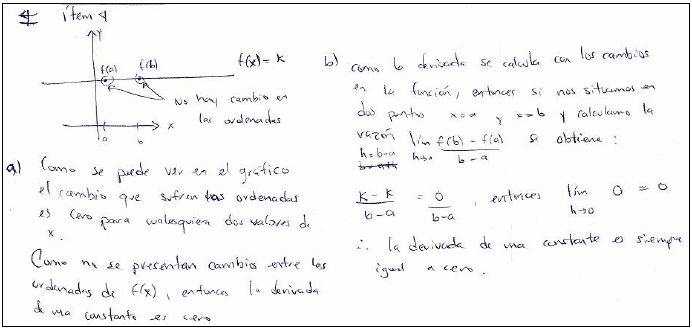 4 Ítem 4
y
f(a) f(b)
f(x) = k
No hay cambio en
las ordenadas
x
a b
a) Como se puede ver en el gráfico
el cambio que sufren las ordenadas
es cero para cualesquiera dos valores de
x.
Como no se presentan cambios entre las
ordenadas de f(x), entonces la derivada
de una constante es cero
b) como la derivada se calcula con los cambios
en la función, entonces si nos situamos en
dos puntos x=a y x=b y calculamos la
razón lím f(b) - f(a) / b-a se obtiene:
h=b-a h→0
k-k / b-a = 0 / b-a, entonces lím 0 = 0
h→0
∴ la derivada de una constante es siempre
igual a cero.